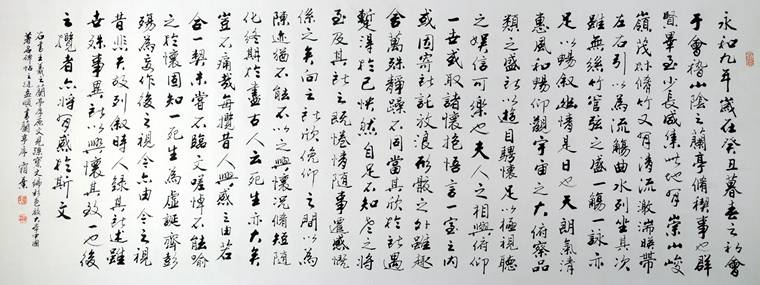 永和九年歲在癸丑暮春之初會
于會稽山陰之蘭亭脩禊事也群
賢畢至少長咸集此地有崇山峻
嶺茂林脩竹又有清流激湍暎帶
左右引以為流觴曲水列坐其次
雖無絲竹管弦之盛一觴一詠亦
足以暢叙幽情是日也天朗氣清
惠風和暢仰觀宇宙之大俯察品
類之盛所以遊目騁懷足以極視聽
之娛信可樂也夫人之相與俯仰
一世或取諸懷抱悟言一室之內
或因寄所託放浪形骸之外雖趣
舍萬殊靜躁不同當其欣於所遇
暫得於己怏然自足不知老之將
至及其所之既惓情隨事遷感慨
係之矣向之所欣俛仰之間以為
陳迹猶不能不以之興懷況脩短隨
化終期於盡古人云死生亦大矣
豈不痛哉每攬昔人興感之由若
合一契未嘗不臨文嗟悼不能喻
之於懷固知一死生為虛誕齊彭
殤為妄作後之視今亦由今之視
昔悲夫故列叙時人錄其所述雖
世殊事異所以興懷其致一也後
之攬者亦將有感於斯文
右書王羲之蘭亭序原文見
蘭亭序